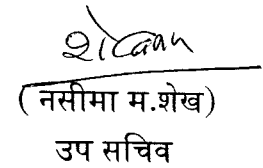 (नसीमा म.शेख)
उप सचिव